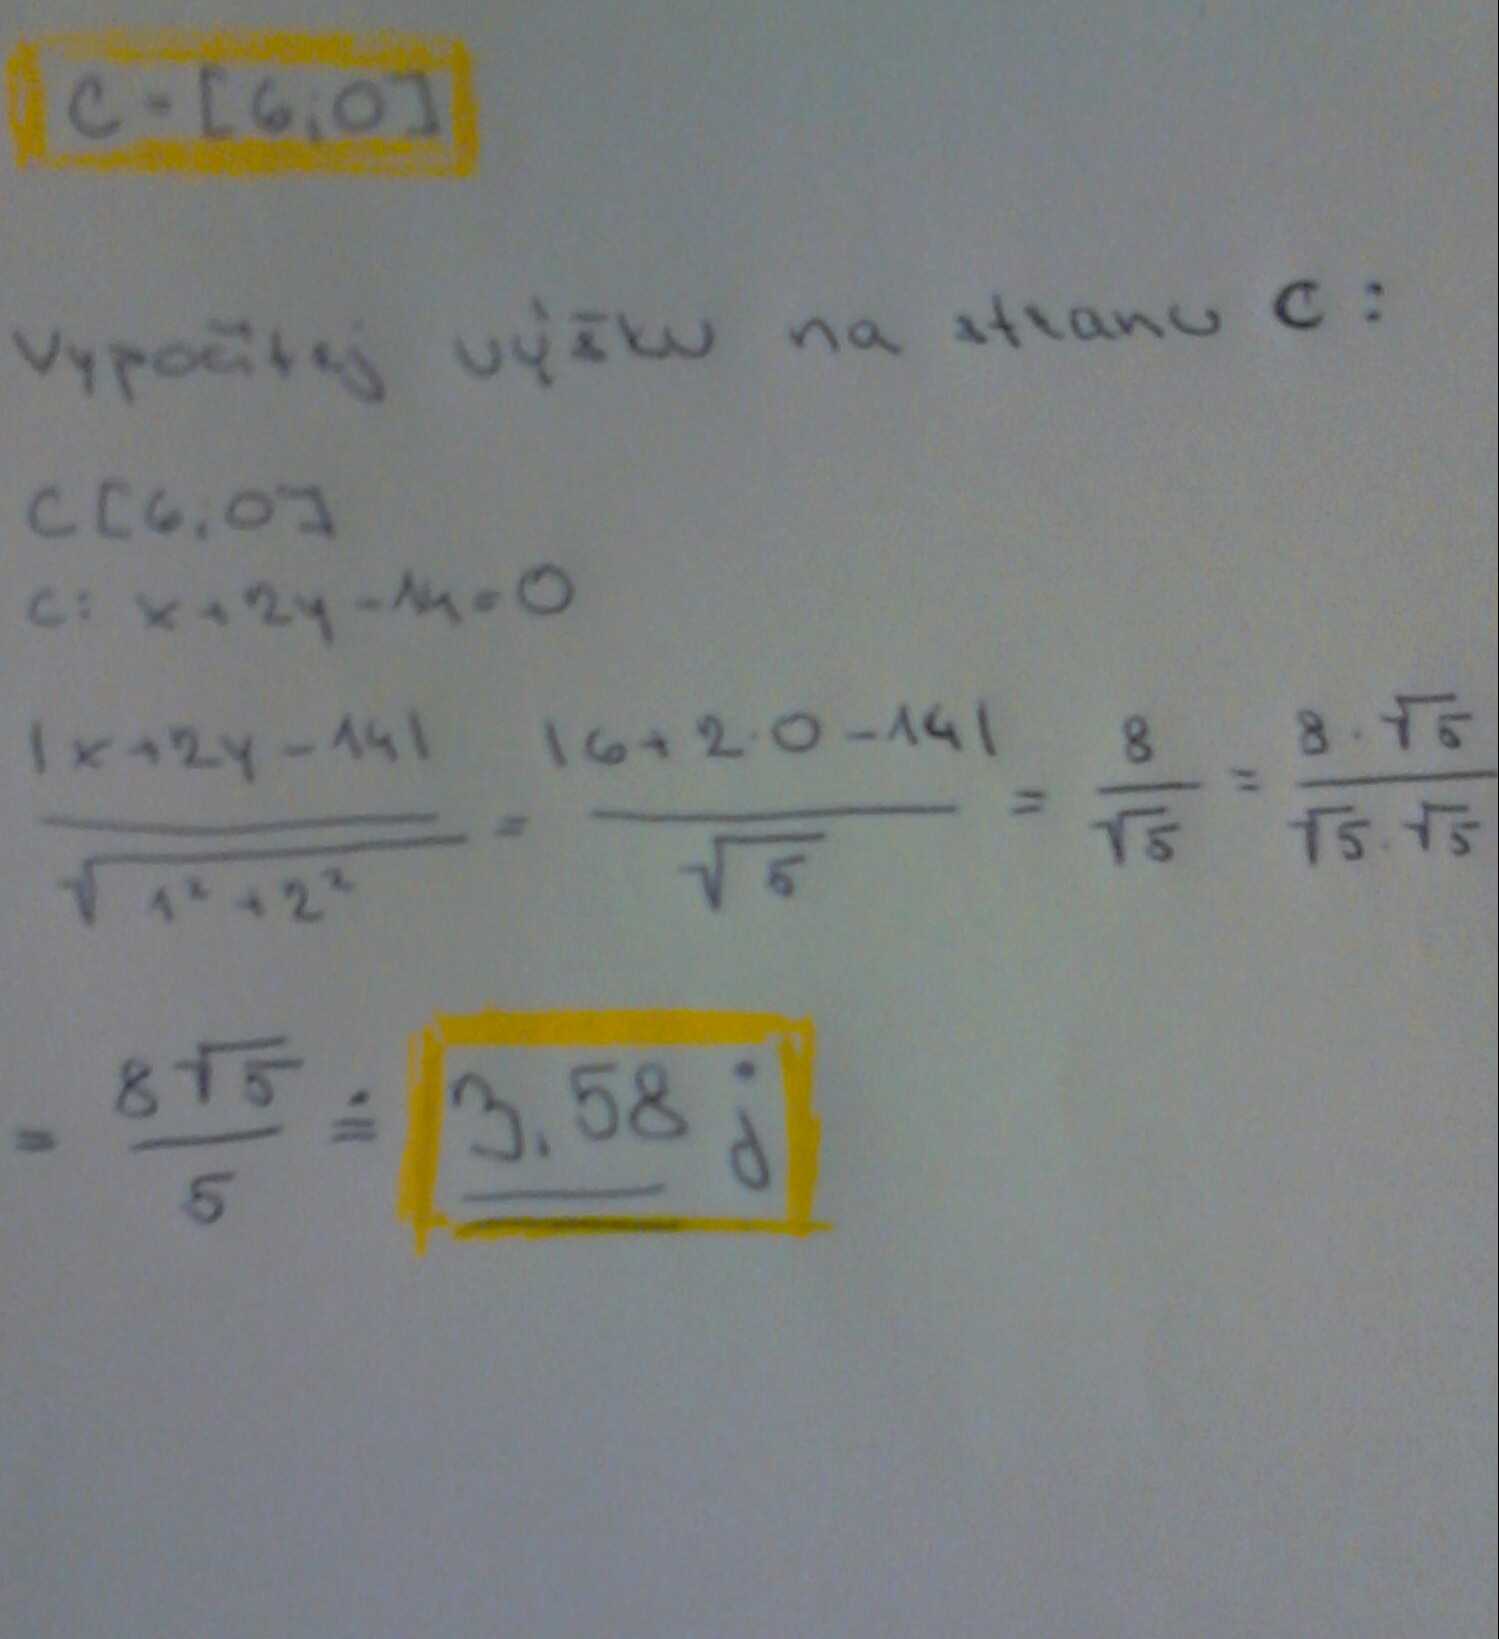 C = [6;0]
Vypočítej výšku na stranu c:
C[6;0]
c: x+2y-14=0
|x+2y-14| / √1²+2² = |6+2·0-14| / √5 = 8 / √5 = 8·√5 / √5·√5
= 8√5 / 5 ≐ 3,58 j